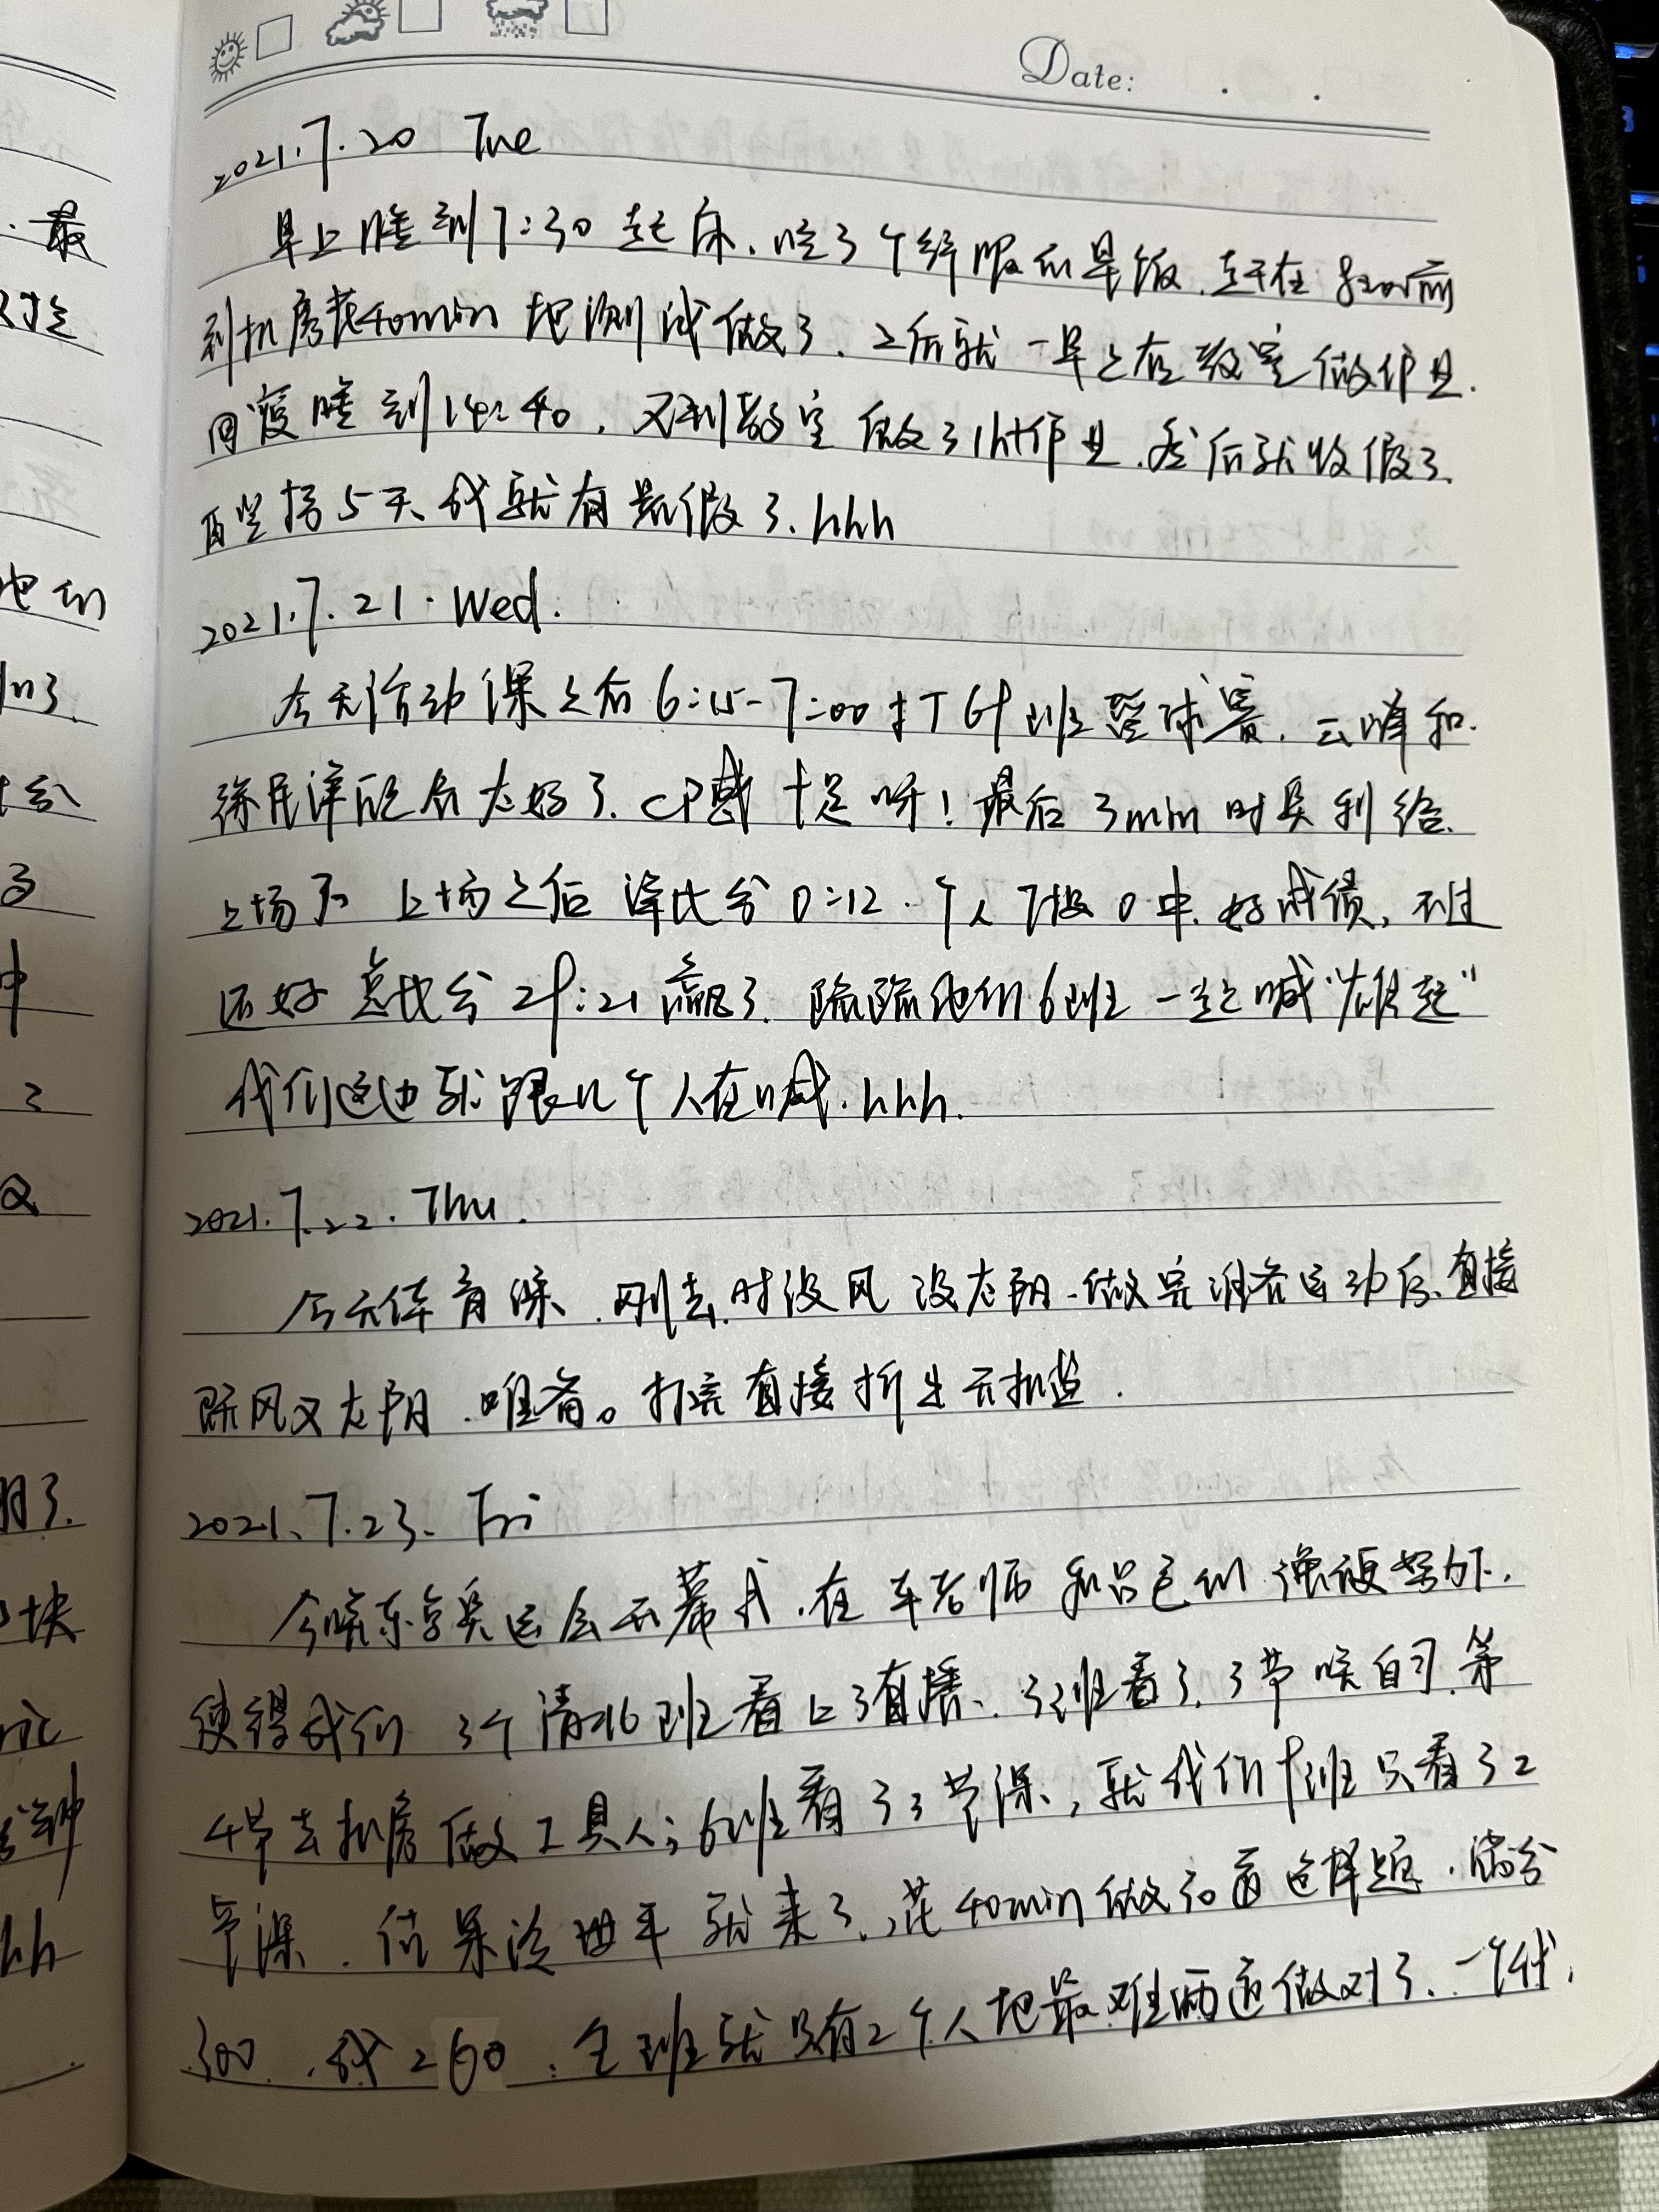 Date: . .
2021.7.20 Tue
早上睡到7:30起床.吃了个舒服的早饭.在8:20前
到机房花40min把测试做了.之后就一早上在教室做作业.
回寝睡到14:40,又到教室做了1h作业.然后就收假了.
再坚持5天我就有暑假了.hhh
2021.7.21.Wed.
今天活动课之后6:15-7:00打6班篮球赛.云峰和
徐民泽配合太好了.CP感十足呀!最后3min时吴利给
上场了 上场之后净比分0:12.个人7投0中.好成绩,不过
还好总比分29:21赢了.隔隔他们6班一起喊"雄起"
我们这边就跟几个人在喊.hhh.
2021.7.22.Thu.
今天体育课.刚去时没风没太阳.做完准备运动后直接
既风又太阳.唯有。打完直接折生无扣篮.
2021.7.23.Fri
今晚东京奥运会开幕式.在车老师和吕老们强硬努力下.
使得我们3个清北班看上了直播.3班看了3节晚自习.第
4节去机房做工具人;6班看了3节课,就我们9班只看了2
节课.结果冷世平就来了,花40min做30道选择题.满分
300.我260.全班就只有2个人把最难两道做对了.一个我.
最
把
们了.
3
中
2
又
明了.
块
分钟
hh